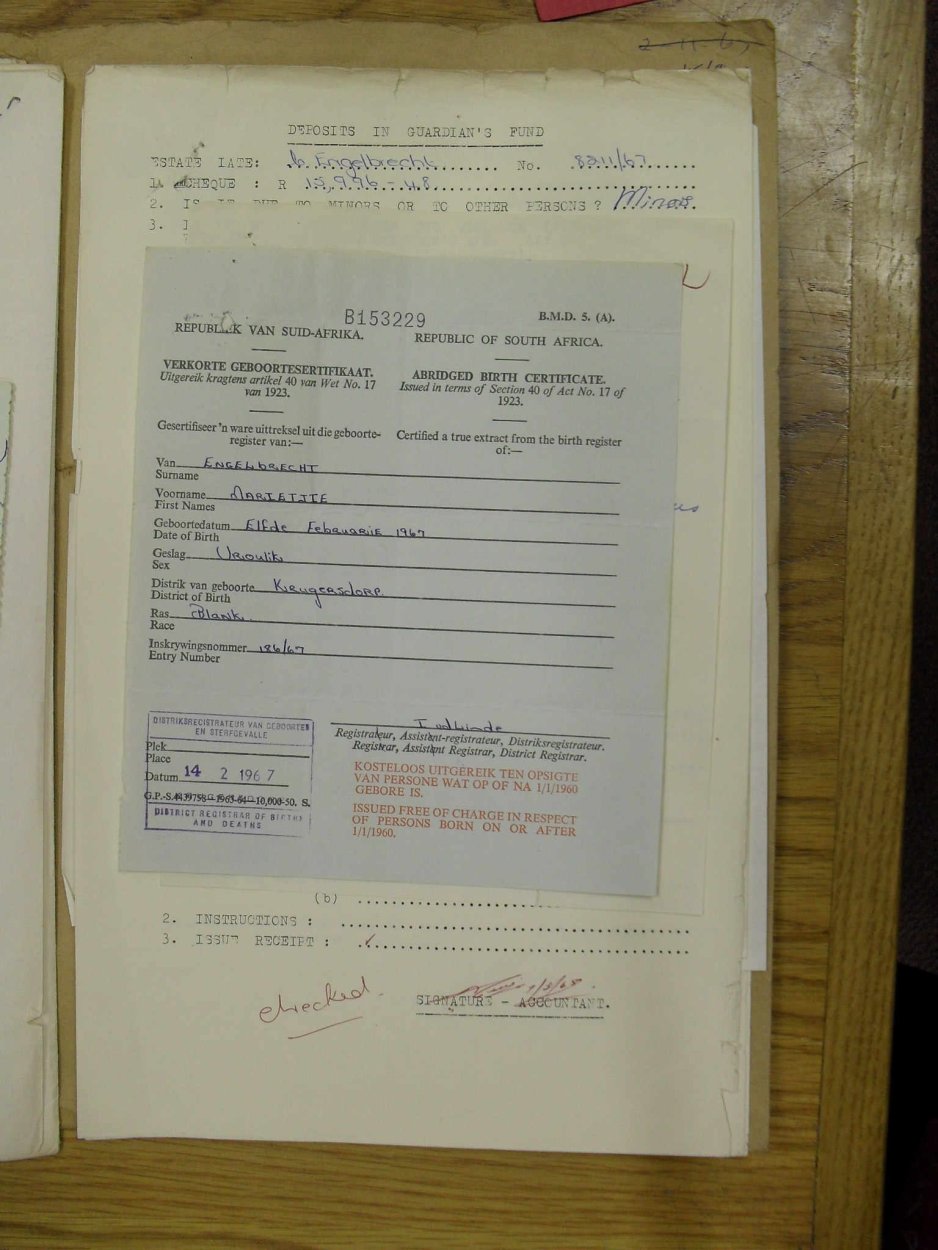 2-11-67
DEPOSITS IN GUARDIAN'S FUND
ESTATE LATE: Engelbrecht No. 8211/67
CHEQUE : R 15,996-48
2. IS IT DUE TO MINORS OR TO OTHER PERSONS ? Minors.
3. I
B153229
B.M.D. 5. (A).
REPUBLIEK VAN SUID-AFRIKA.
REPUBLIC OF SOUTH AFRICA.
VERKORTE GEBOORTESERTIFIKAAT.
Uitgereik kragtens artikel 40 van Wet No. 17
van 1923.
ABRIDGED BIRTH CERTIFICATE.
Issued in terms of Section 40 of Act No. 17 of
1923.
Gesertifiseer 'n ware uittreksel uit die geboorte-
register van:—
Certified a true extract from the birth register
of:—
Van ENGELBRECHT
Surname
Voorname MARIETJIE
First Names
Geboortedatum Elfde Februarie 1967
Date of Birth
Geslag Vroulik
Sex
Distrik van geboorte Krugersdorp
District of Birth
Ras Blank.
Race
Inskrywingsnommer 186/67
Entry Number
DISTRIKSREGISTRATEUR VAN GEBOORTEN
EN STERFGEVALLE
Plek
Place
Datum 14 2 1967
G.P.-S.4439758—1963-64—10,000-50. S.
DISTRICT REGISTRAR OF BIRTHS
AND DEATHS
Registrateur, Assistent-registrateur, Distriksregistrateur.
Registrar, Assistant Registrar, District Registrar.
KOSTELOOS UITGEREIK TEN OPSIGTE
VAN PERSONE WAT OP OF NA 1/1/1960
GEBORE IS.
ISSUED FREE OF CHARGE IN RESPECT
OF PERSONS BORN ON OR AFTER
1/1/1960.
(b)
2. INSTRUCTIONS :
3. ISSUE RECEIPT :
checked.
SIGNATURE - ACCOUNTANT.